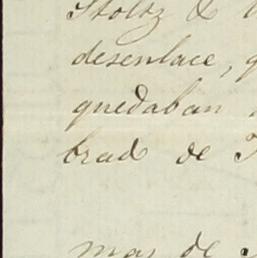 Stoltz &
desenlace,
quedaban
brad de
mas de